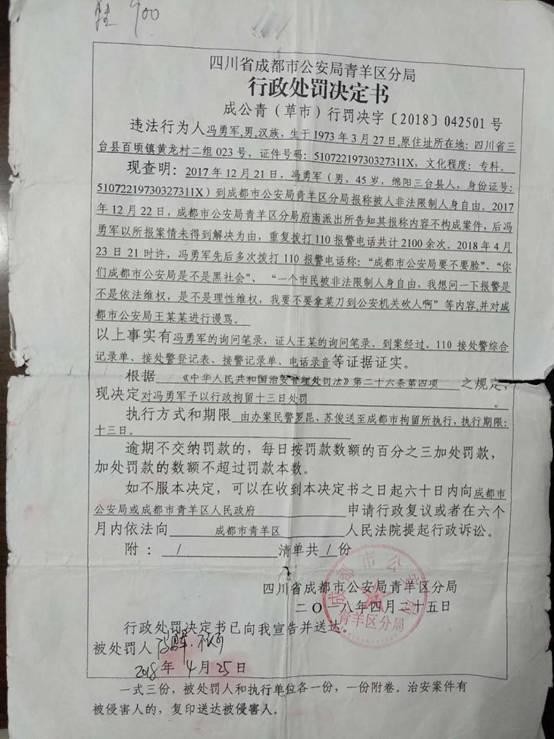 900
四川省成都市公安局青羊区分局
行政处罚决定书
成公青（草市）行罚决字〔2018〕042501 号
违法行为人冯勇军,男,汉族，生于1973年3月27日,原住址所在地：四川省三
台县百顷镇黄龙村二组023号，证件号码：51072219730327311X，文化程度：专科。
现查明：2017年12月21日，冯勇军（男，45岁，绵阳三台县人，身份证号：
51072219730327311X）到成都市公安局青羊区分局报称被人非法限制人身自由。2017
年12月22日，成都市公安局青羊区分局府南派出所告知其报称内容不构成案件，后冯
勇军以所报案情未得到解决为由，重复拨打110报警电话共计2100余次。2018年4月
23日21时许，冯勇军先后多次拨打110报警电话称：“成都市公安局要不要脸”、“你
们成都市公安局是不是黑社会”、“一个市民被非法限制人身自由，我想问一下报警是
不是依法维权，是不是理性维权，我要不要拿菜刀到公安机关砍人啊”等内容,并对成
都市公安局王某某进行谩骂。
以上事实有冯勇军的询问笔录，证人王某的询问笔录、到案经过、110接处警综合
记录单、接处警登记表、接警记录单、电话录音等证据证实。
根据《中华人民共和国治安管理处罚法》第二十六条第四项之规定，
现决定对冯勇军予以行政拘留十三日处罚。
执行方式和期限 由办案民警罗昆、苏俊送至成都市拘留所执行，执行期限：
十三日。
逾期不交纳罚款的，每日按罚款数额的百分之三加处罚款，
加处罚款的数额不超过罚款本数。
如不服本决定，可以在收到本决定书之日起六十日内向成都市
公安局或成都市青羊区人民政府 申请行政复议或者在六个
月内依法向 成都市青羊区 人民法院提起行政诉讼。
附：/ 清单共/份
四川省成都市公安局青羊区分局
二〇一八年四月二十五日
行政处罚决定书已向我宣告并送达。
被处罚人
2018年4月25日
一式三份，被处罚人和执行单位各一份，一份附卷。治安案件有
被侵害人的，复印送达被侵害人。